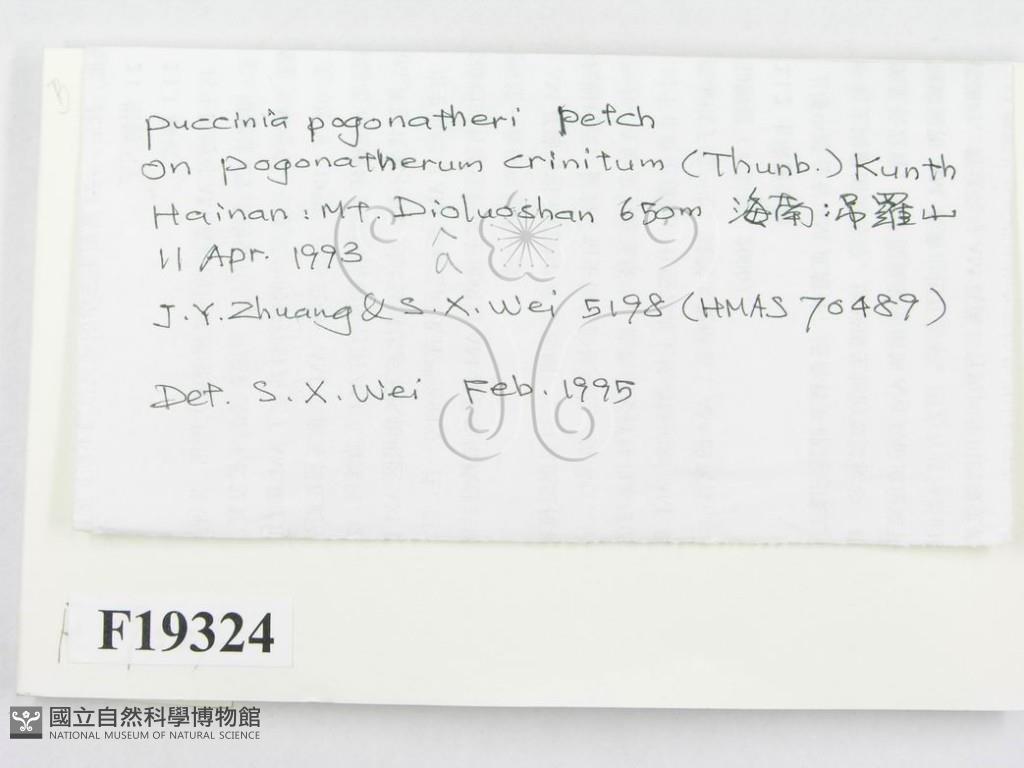 Puccinia pogonatheri Petch
on Pogonatherum crinitum (Thunb.) Kunth
Hainan: Mt. Dioluoshan 650m 海南:吊羅山
^
a
11 Apr. 1993
J.Y.Zhuang & S.X.Wei 5198 (HMAS 70489)
Det. S.X.Wei Feb. 1995
F19324
國立自然科學博物館
NATIONAL MUSEUM OF NATURAL SCIENCE